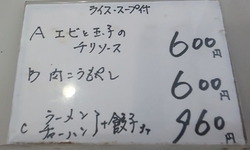 ライス・スープ付
A エビと玉子の
チリソース 600円
B 肉こうもやし 600円
C ラーメン
チャーハン }+餃子 960円